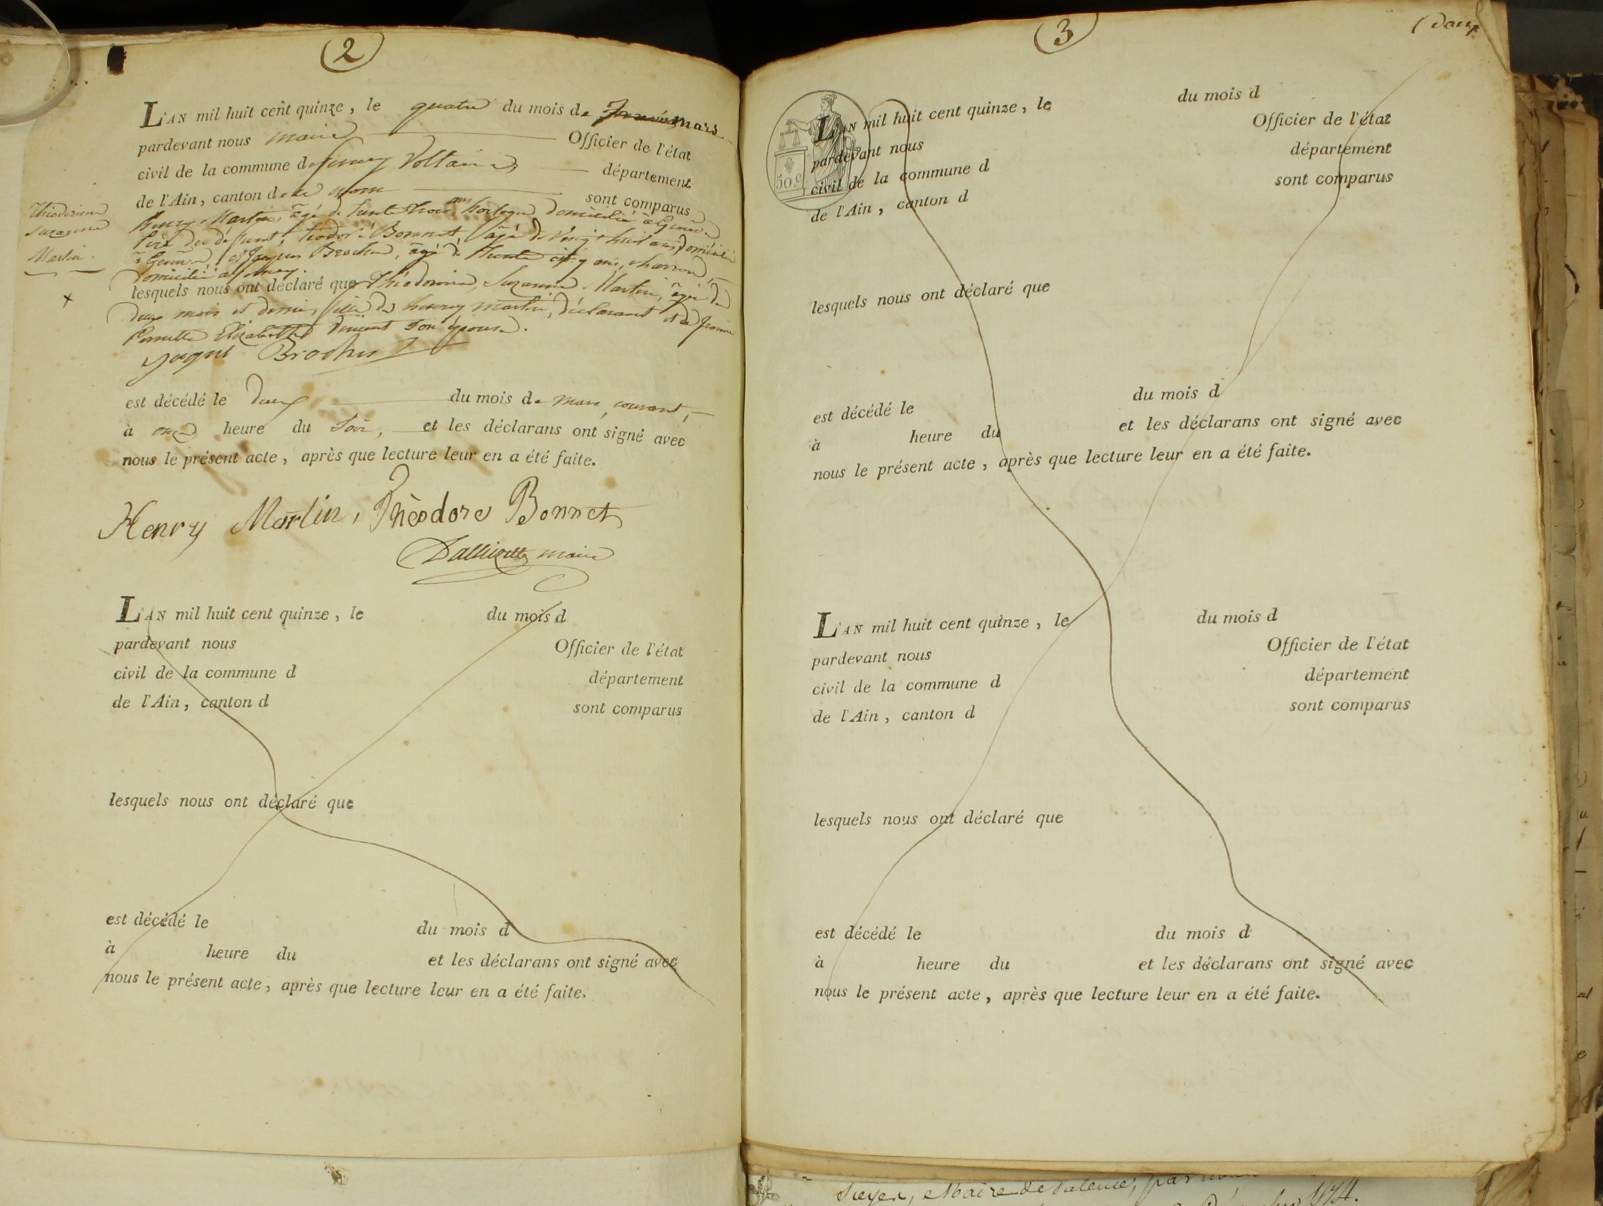 2
L'AN mil huit cent quinze, le quatre du mois de mars
pardevant nous maire Officier de l'état
civil de la commune de ferney Voltaire département
de l'Ain, canton de ce nom sont comparus
Théodorine
Suzanne
Martin.
henry Martin, âgé de trente trois ans, horloger domicilié à Genève
père du défunt, théodore Bonnet, âgé de vingt huit ans, domicilié
à Genève, et Jaques Brochu, âgé de trente cinq ans, charron,
domicilié à ferney.
lesquels nous ont déclaré que théodorine Suzanne Martin, âgée de
deux mois et demi, fille de henry martin, déclarant et de
Elizabeth son épouse.
jaque Brochu
est décédé le deux du mois de mars courant,
à onze heure du Soir, et les déclarans ont signé avec
nous le présent acte, après que lecture leur en a été faite.
Henry Martin, Thèodore Bonnet
maire
L'AN mil huit cent quinze, le du mois d
pardevant nous Officier de l'état
civil de la commune d département
de l'Ain, canton d sont comparus
lesquels nous ont déclaré que
est décédé le du mois d
à heure du et les déclarans ont signé avec
nous le présent acte, après que lecture leur en a été faite.
3
50 c.
L'AN mil huit cent quinze, le du mois d
pardevant nous Officier de l'état
civil de la commune d département
de l'Ain, canton d sont comparus
lesquels nous ont déclaré que
est décédé le du mois d
à heure du et les déclarans ont signé avec
nous le présent acte, après que lecture leur en a été faite.
L'AN mil huit cent quinze, le du mois d
pardevant nous Officier de l'état
civil de la commune d département
de l'Ain, canton d sont comparus
lesquels nous ont déclaré que
est décédé le du mois d
à heure du et les déclarans ont signé avec
nous le présent acte, après que lecture leur en a été faite.